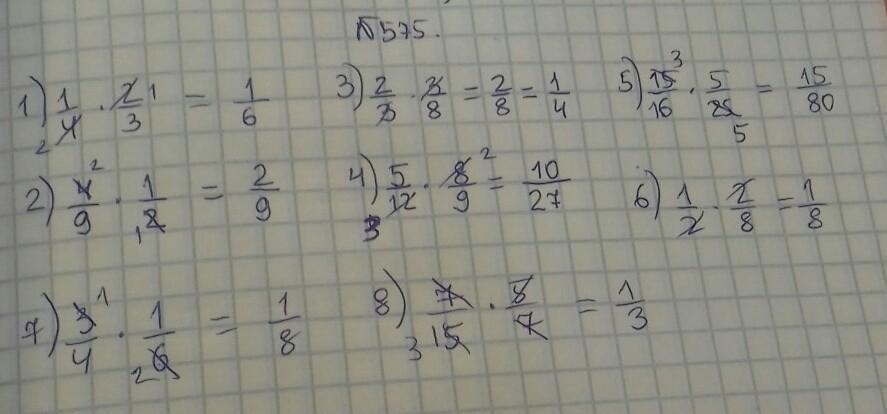 №575.
1) 1/4 · 2/3 = 1/6
2 1
3) 2/3 · 3/8 = 2/8 = 1/4
5) 15/16 · 5/25 = 15/80
3 5
2) 4/9 · 1/2 = 2/9
2 1
4) 5/12 · 8/9 = 10/27
3 2
6) 1/2 · 2/8 = 1/8
7) 3/4 · 1/6 = 1/8
1 2
8) 7/15 · 5/7 = 1/3
3